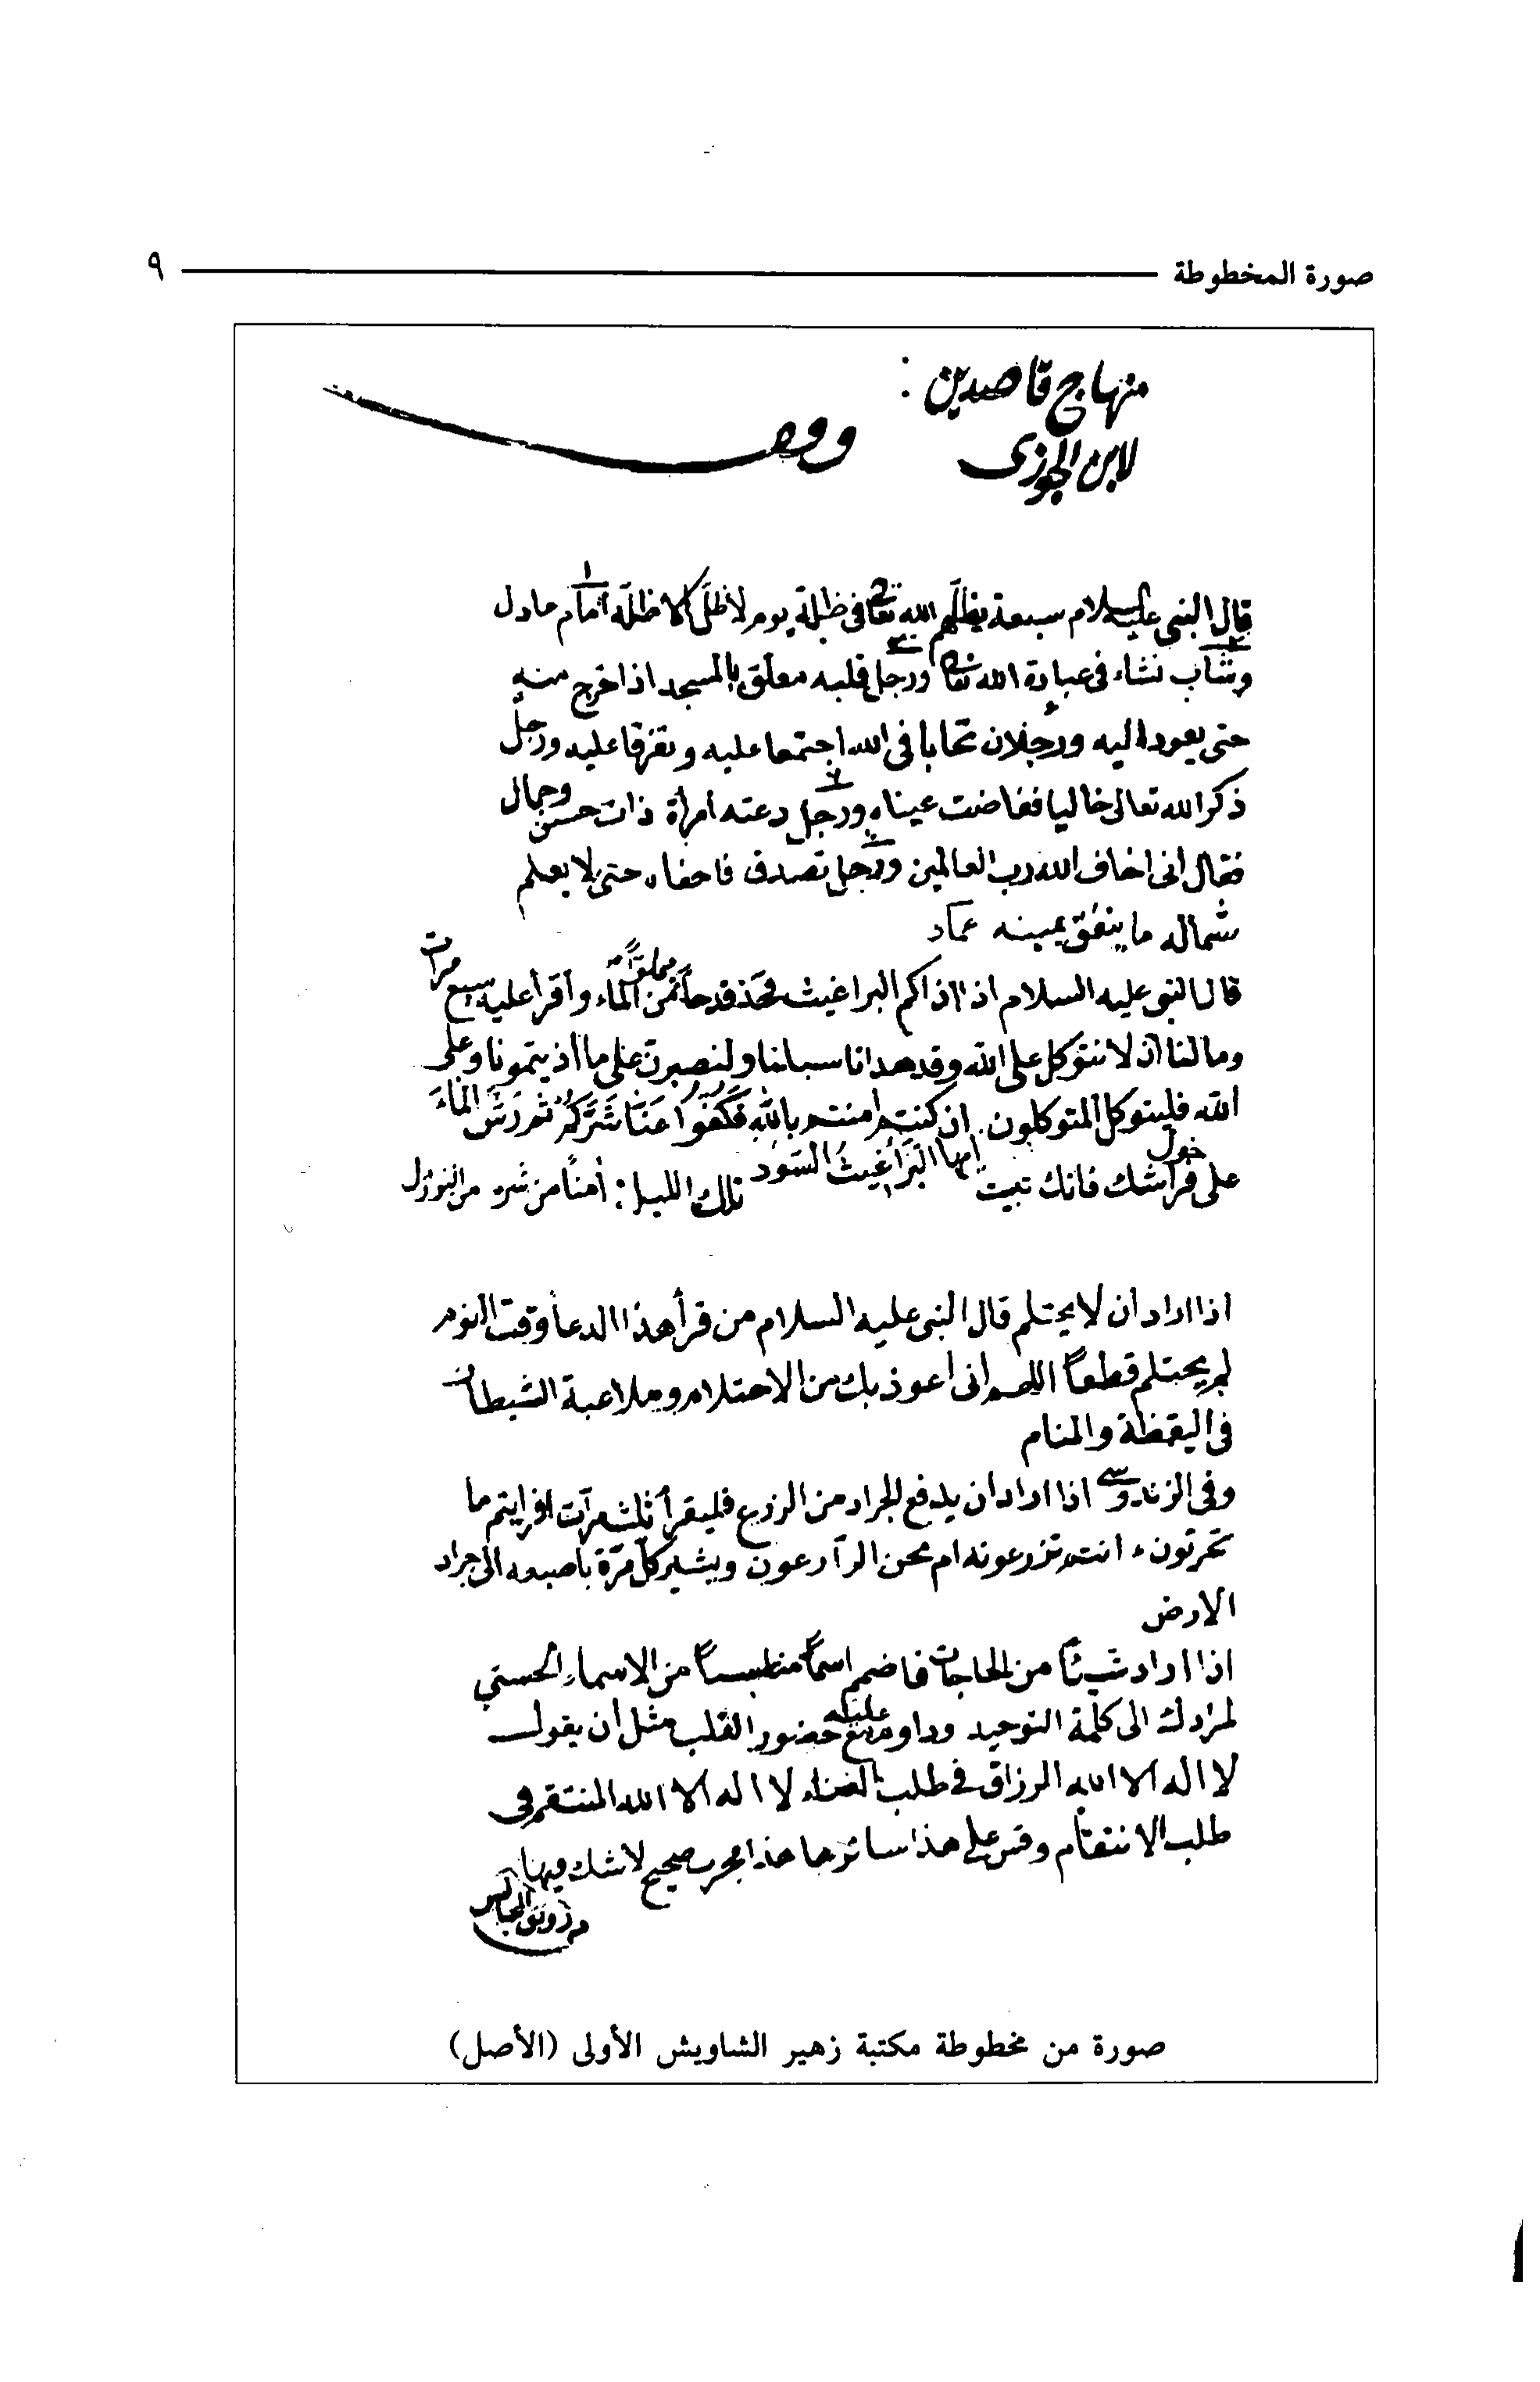 صورة المخطوطة ٩
منهاج قاصدين :
لابن الجوزى وقف
قال النبى عليه السلام سبعة يظلهم الله تعالى فى ظله يوم لا ظل الا ظله امام عادل
وشاب نشاء فى عبادة الله تعالى ورجل قلبه معلق بالمسجد اذا خرج منه
حتى يعود اليه ورجلان تحابا فى الله اجتمعا عليه وتفرقا عليه ورجل
ذكر الله تعالى خاليا ففاضت عيناه ورجل دعته امرأة ذات حسن وجمال
فقال انى اخاف الله رب العالمين ورجل تصدق فاخفاه حتى لا يعلم
شماله ما ينفق يمينه
قال النبى عليه السلام اذا اذاكم البراغيث فخذ قدحاً من الماء وأقرأ عليه سبع مرات
ومالنا ان لا نتوكل على الله وقد هدانا سبلنا ولنصبرن على ما أذيتمونا وعلى
الله فليتوكل المتوكلون. ان كنتم امنتم بالله فكفوا عنا شركم ثم رش الماء
على حول فراشك فانك تبيت ايها البراغيث السود تلك الليل: أمناً من شره
اذا اراد ان لا يحتلم قال النبى عليه السلام من قرأ هذا الدعا وقت النوم
لم يحتلم قطعاً اللهم انى اعوذ بك من الاحتلام وملاعبة الشيطان
فى اليقظة والمنام
وفى اذا اراد ان يدفع الجراد من الزرع فليقرأ ثلث مرات افرايتم ما
تحرثون ء انتم تزرعونه ام نحن الزارعون ويشير كل مرة باصبعه الى جراد
الارض
اذا اراد شيئاً من الحاجات فاضم اسماً مناسباً من الاسماء الحسنى
لمرادك الى كلمة التوحيد وداوم عليه مع حضور القلب مثل ان يقول
لا اله الا الله الرزاق فى طلب الغناء لا اله الا الله المنتقم فى
طلب الانتقام وقس على هذا سائرها هذا مجرب صحيح لا شك فيها
صورة من مخطوطة مكتبة زهير الشاويش الأولى (الأصل)